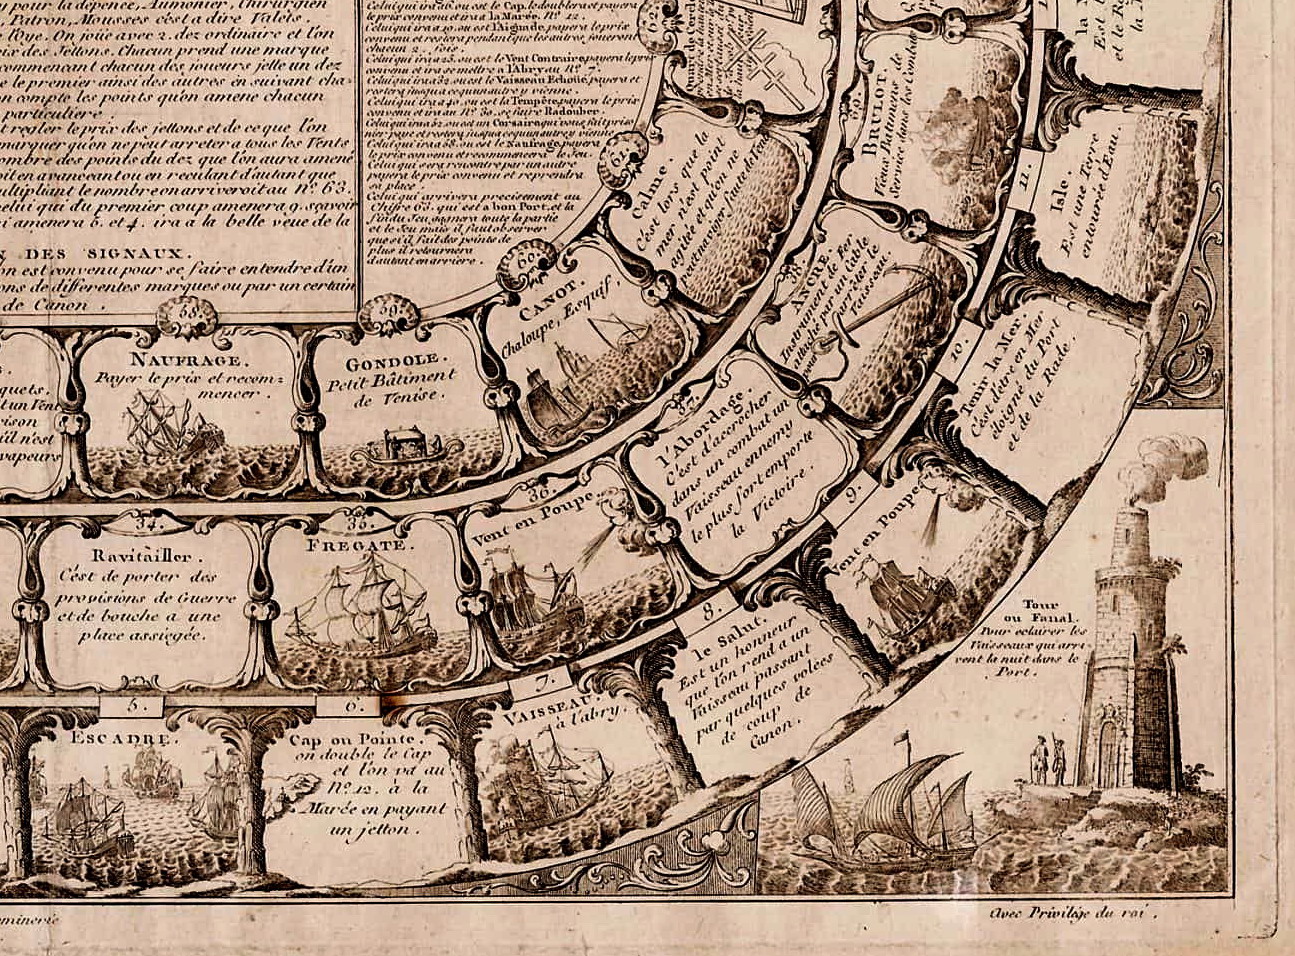 pour la dépence, Aumonier, Chirurgien
, Patron, Mousses c'est a dire Valets.
l'Oye. On joüe avec 2. dez ordinaire et l'on
des Jettons. Chacun prend une marque
commencant chacun des joueurs jette un dez
le premier ainsi des autres en suivant cha-
on compte les points qu'on amene chacun
particuliere.
regler le prix des jettons et de ce que l'on
marquer qu'on ne peut arreter a tous les Vents
nombre des points du dez que l'on aura amené
en avancant ou en reculant d'autant que
multipliant le nombre on arriveroit au N.º 63.
celui qui du premier coup amenera 9. sçavoir
amenera 5. et 4. ira a la belle veue de la
DES SIGNAUX.
on est convenu pour se faire entendre d'un
de differentes marques ou par un certain
de Canon.
Celui qui ira 6. ou est le Cap, le doublera et payera
le prix convenu et ira a la Marée. Nº. 12.
Celui qui ira 19. ou est l'Aiguade, payera le prix
convenu et restera pendant que les autres joueront
chacun 2. fois.
Celui qui ira 25. ou est le Vent Contraire, payera le prix
convenu et ira se mettre a l'Abry au Nº 7.
Celui qui ira 32. ou est le Vaisseau Echoüé, payera et
restera jusqua ce qu'un autre y vienne.
Celui qui ira 40. ou est la Tempête, payera le prix
convenu et ira au Nº 30. se faire Radouber.
Celui qui ira 52. ou est un Corsaire qui vous fait priso-
nier, paye et restera jusqua ce qu'un autre y vienne
Celui qui ira 58. ou est le Naufrage, payera
le prix convenu et recommencera le Jeu.
Celui qui sera rencontré par un autre
payera le prix convenu et reprendra
sa place.
Celui qui arrivera precisement au
Chifre 63. qui est a bon Port, et la
fin du Jeu, gagnera toute la partie
et le Jeu mais il faut observer
que si il fait des points de
plus il retournera
d'autant en arriere.
62.
61.
Calme.
C'est lors que la
mer n'est point
agitée et qu'on ne
peut naviger, faute de vent
60.
CANOT.
Chaloupe, Esquif
59.
GONDOLE.
Petit Bâtiment
de Venise.
58.
NAUFRAGE.
Payer le prix et recom=
mencer.
vapeurs
39.
BRULOT.
Vieux Batiments de
Service dans les Combats
38.
ANCRE.
Instrument de Fer
attaché par un Cable
pour arrêter le
Vaisseau.
37.
l'Abordage.
C'est d'accrocher
dans un combat un
Vaisseau ennemy
le plus fort emporte
la Victoire.
36.
Vent en Poupe
35.
FREGATE.
34.
Ravitailler.
C'est de porter des
provisions de Guerre
et de bouche a une
place assiegée.
11.
Isle.
Est une Terre
entourée d'Eau.
10.
Tenir la Mer.
C'est d'être en Mer
éloigné du Port
et de la Rade.
9.
Vent en Poupe
8.
le Salut.
Est un honneur
que l'on rend a un
Vaisseau passant
par quelques volées
de coup de
Canon.
7.
VAISSEAU
à l'abry.
6.
Cap ou Pointe.
on double le Cap
et l'on va au
Nº. 12. à la
Marée en payant
un jetton.
5.
ESCADRE.
Tour
ou Fanal.
Pour eclairer les
Vaisseaux qui arri-
vent la nuit dans le
Port.
Avec Privilége du roi.